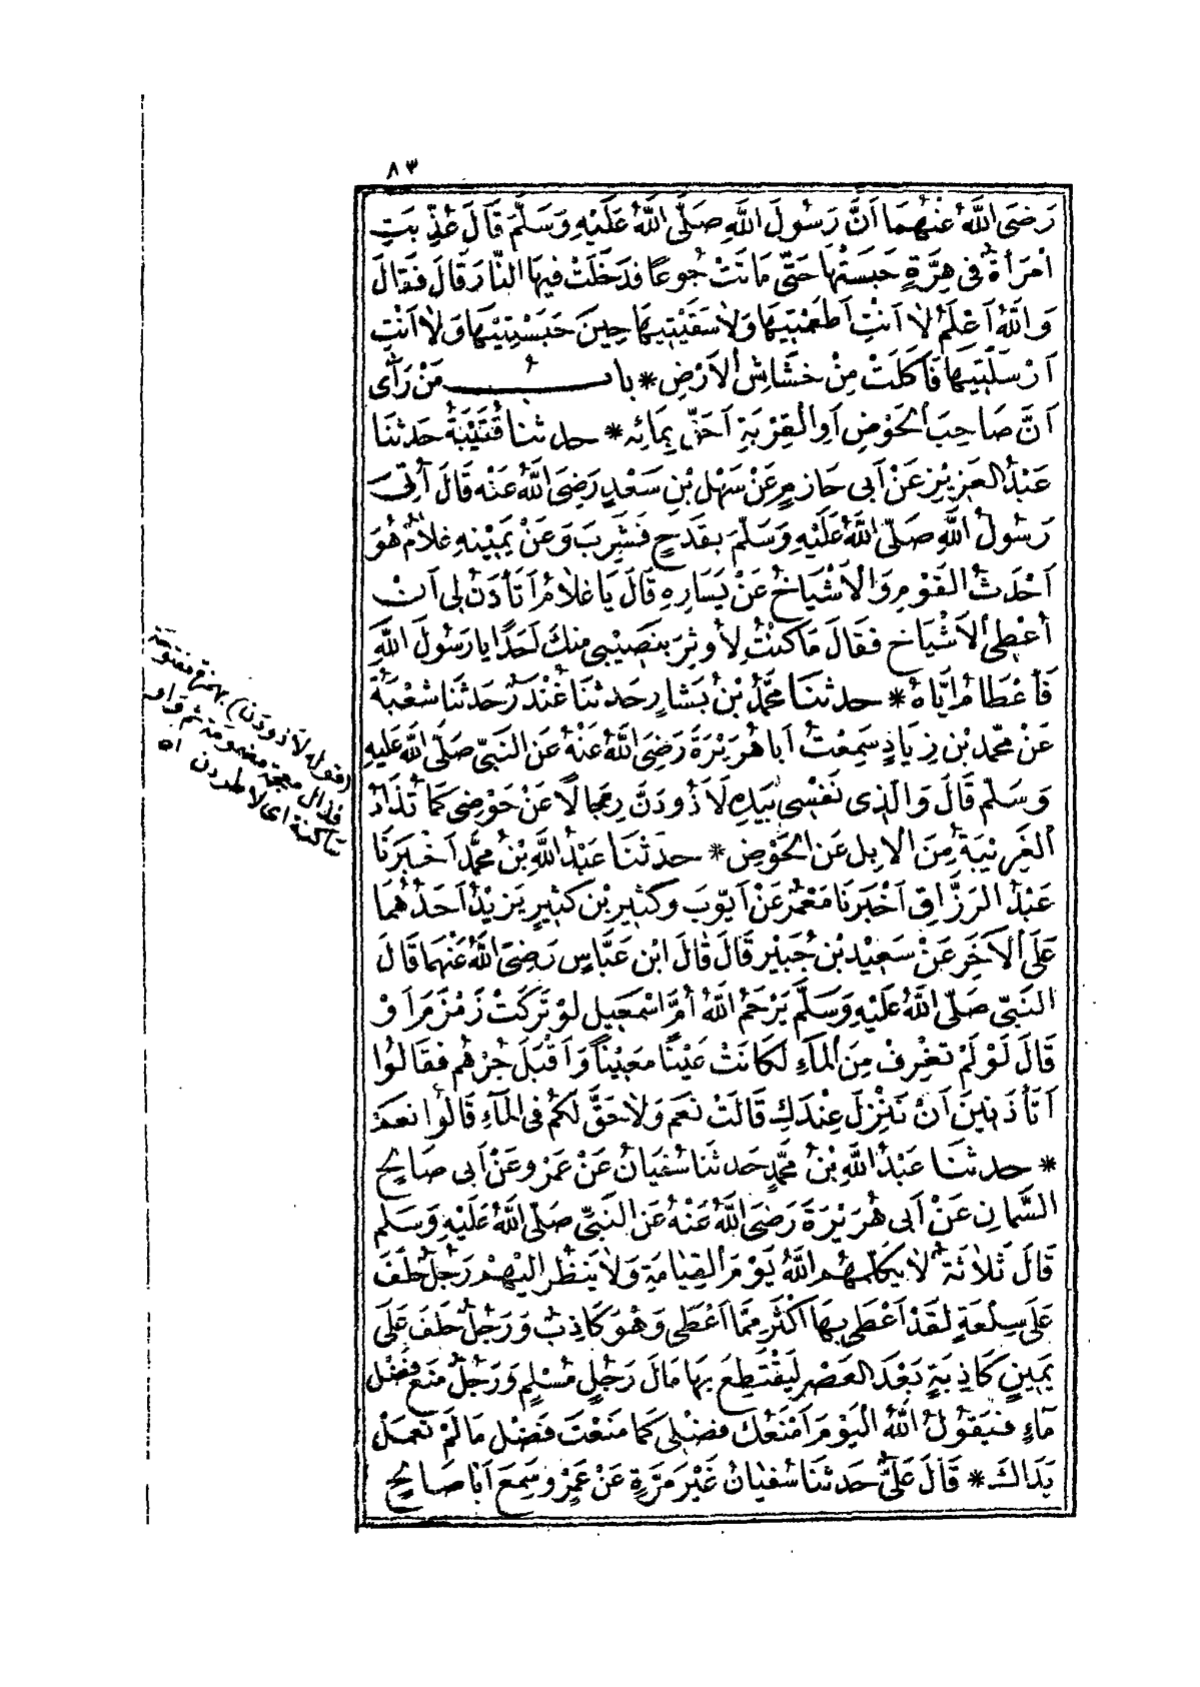 ٨٣
رَضِيَ اللَّهُ عَنْهُمَا أَنَّ رَسُولَ اللَّهِ صَلَّى اللَّهُ عَلَيْهِ وَسَلَّمَ قَالَ عُذِّبَتِ
امْرَأَةٌ فِي هِرَّةٍ حَبَسَتْهَا حَتَّى مَاتَتْ جُوعًا فَدَخَلَتْ فِيهَا النَّارَ قَالَ فَقَالَ
وَاللَّهُ أَعْلَمُ لَا أَنْتِ أَطْعَمْتِيهَا وَلَا سَقَيْتِيهَا حِينَ حَبَسْتِيهَا وَلَا أَنْتِ
أَرْسَلْتِيهَا فَأَكَلَتْ مِنْ خَشَاشِ الْأَرْضِ * بَابُ مَنْ رَأَى
أَنَّ صَاحِبَ الْحَوْضِ أَوِ الْقِرْبَةِ أَحَقُّ بِمَائِهِ * حدثنا قُتَيْبَةُ حَدثنَا
عَبْدُ الْعَزِيْزِ عَنْ أَبِي حَازِمٍ عَنْ سَهْلِ بْنِ سَعْدٍ رَضِيَ اللَّهُ عَنْهُ قَالَ أُتِيَ
رَسُولُ اللَّهِ صَلَّى اللَّهُ عَلَيْهِ وَسَلَّمَ بِقَدَحٍ فَشَرِبَ وَعَنْ يَمِيْنِهِ غُلَامٌ هُوَ
أَحْدَثُ الْقَوْمِ وَالْأَشْيَاخُ عَنْ يَسَارِهِ قَالَ يَا غُلَامُ أَتَأْذَنُ لِي أَنْ
أُعْطِيَ الْأَشْيَاخَ فَقَالَ مَا كُنْتُ لِأُوثِرَ بِنَصِيْبِي مِنْكَ أَحَدًا يَا رَسُولَ اللَّهِ
فَأَعْطَاهُ إِيَّاهُ * حدثنَا مُحَمَّدُ بْنُ بَشَّارٍ حَدثنَا غُنْدَرٌ حَدثنَا شُعْبَةُ
عَنْ مُحَمَّدِ بْنِ زِيَادٍ سَمِعْتُ أَبَا هُرَيْرَةَ رَضِيَ اللَّهُ عَنْهُ عَنِ النَّبِيِّ صَلَّى اللَّهُ عَلَيْهِ
وَسَلَّمَ قَالَ وَالَّذِي نَفْسِي بِيَدِهِ لَأَذُودَنَّ رِجَالًا عَنْ حَوْضِي كَمَا تُذَادُ
الْغَرِيْبَةُ مِنَ الْإِبِلِ عَنِ الْحَوْضِ * حدثنَا عَبْدُ اللَّهِ بْنُ مُحَمَّدٍ أَخْبَرَنَا
عَبْدُ الرَّزَّاقِ أَخْبَرَنَا مَعْمَرٌ عَنْ أَيُّوبَ وَكَثِيْرِ بْنِ كَثِيْرٍ يَزِيْدُ أَحَدُهُمَا
عَلَى الْآخَرِ عَنْ سَعِيْدِ بْنِ جُبَيْرٍ قَالَ قَالَ ابْنُ عَبَّاسٍ رَضِيَ اللَّهُ عَنْهُمَا قَالَ
النَّبِيُّ صَلَّى اللَّهُ عَلَيْهِ وَسَلَّمَ يَرْحَمُ اللَّهُ أُمَّ إِسْمَعِيلَ لَوْ تَرَكَتْ زَمْزَمَ أَوْ
قَالَ لَوْ لَمْ تَغْرِفْ مِنَ الْمَاءِ لَكَانَتْ عَيْنًا مَعِيْنًا وَأَقْبَلَ جُرْهُمُ فَقَالُوا
أَتَأْذَنِينَ أَنْ نَنْزِلَ عِنْدَكِ قَالَتْ نَعَمْ وَلَا حَقَّ لَكُمْ فِي الْمَاءِ قَالُوا نَعَمْ
* حدثنَا عَبْدُ اللَّهِ بْنُ مُحَمَّدٍ حَدثنَا سُفْيَانُ عَنْ عَمْرٍو عَنْ أَبِي صَالِحٍ
السَّمَّانِ عَنْ أَبِي هُرَيْرَةَ رَضِيَ اللَّهُ عَنْهُ عَنِ النَّبِيِّ صَلَّى اللَّهُ عَلَيْهِ وَسَلَّمَ
قَالَ ثَلَاثَةٌ لَا يُكَلِّمُهُمُ اللَّهُ يَوْمَ الْقِيَامَةِ وَلَا يَنْظُرُ إِلَيْهِمْ رَجُلٌ حَلَفَ
عَلَى سِلْعَةٍ لَقَدْ أَعْطَى بِهَا أَكْثَرَ مِمَّا أَعْطَى وَهُوَ كَاذِبٌ وَرَجُلٌ حَلَفَ عَلَى
يَمِيْنٍ كَاذِبَةٍ بَعْدَ الْعَصْرِ لِيَقْتَطِعَ بِهَا مَالَ رَجُلٍ مُسْلِمٍ وَرَجُلٌ مَنَعَ فَضْلَ
مَاءٍ فَيَقُولُ اللَّهُ الْيَوْمَ أَمْنَعُكَ فَضْلِي كَمَا مَنَعْتَ فَضْلَ مَا لَمْ تَعْمَلْ
يَدَاكَ * قَالَ عَلِيٌّ حَدثنَا سُفْيَانُ غَيْرَ مَرَّةٍ عَنْ عَمْرٍو سَمِعَ أَبَا صَالِحٍ
(قوله لأذودن) بهمزة مفتوحة
فذال معجمة مضمومة ثم واو
ساكنة اى لاطردن اه